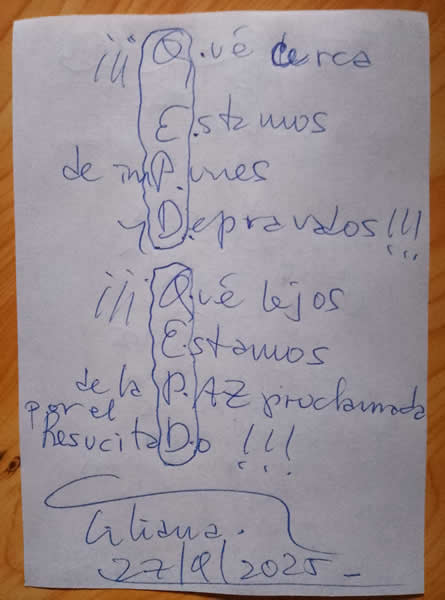 ¡¡¡ Q.ué cerca
E.stamos
de imP.unes
y D.epravados!!!
¡¡¡ Q.ué lejos
E.stamos
de la P.AZ proclamada
por el
ResucitaD.o !!!
Liliana.
27/9/2025_